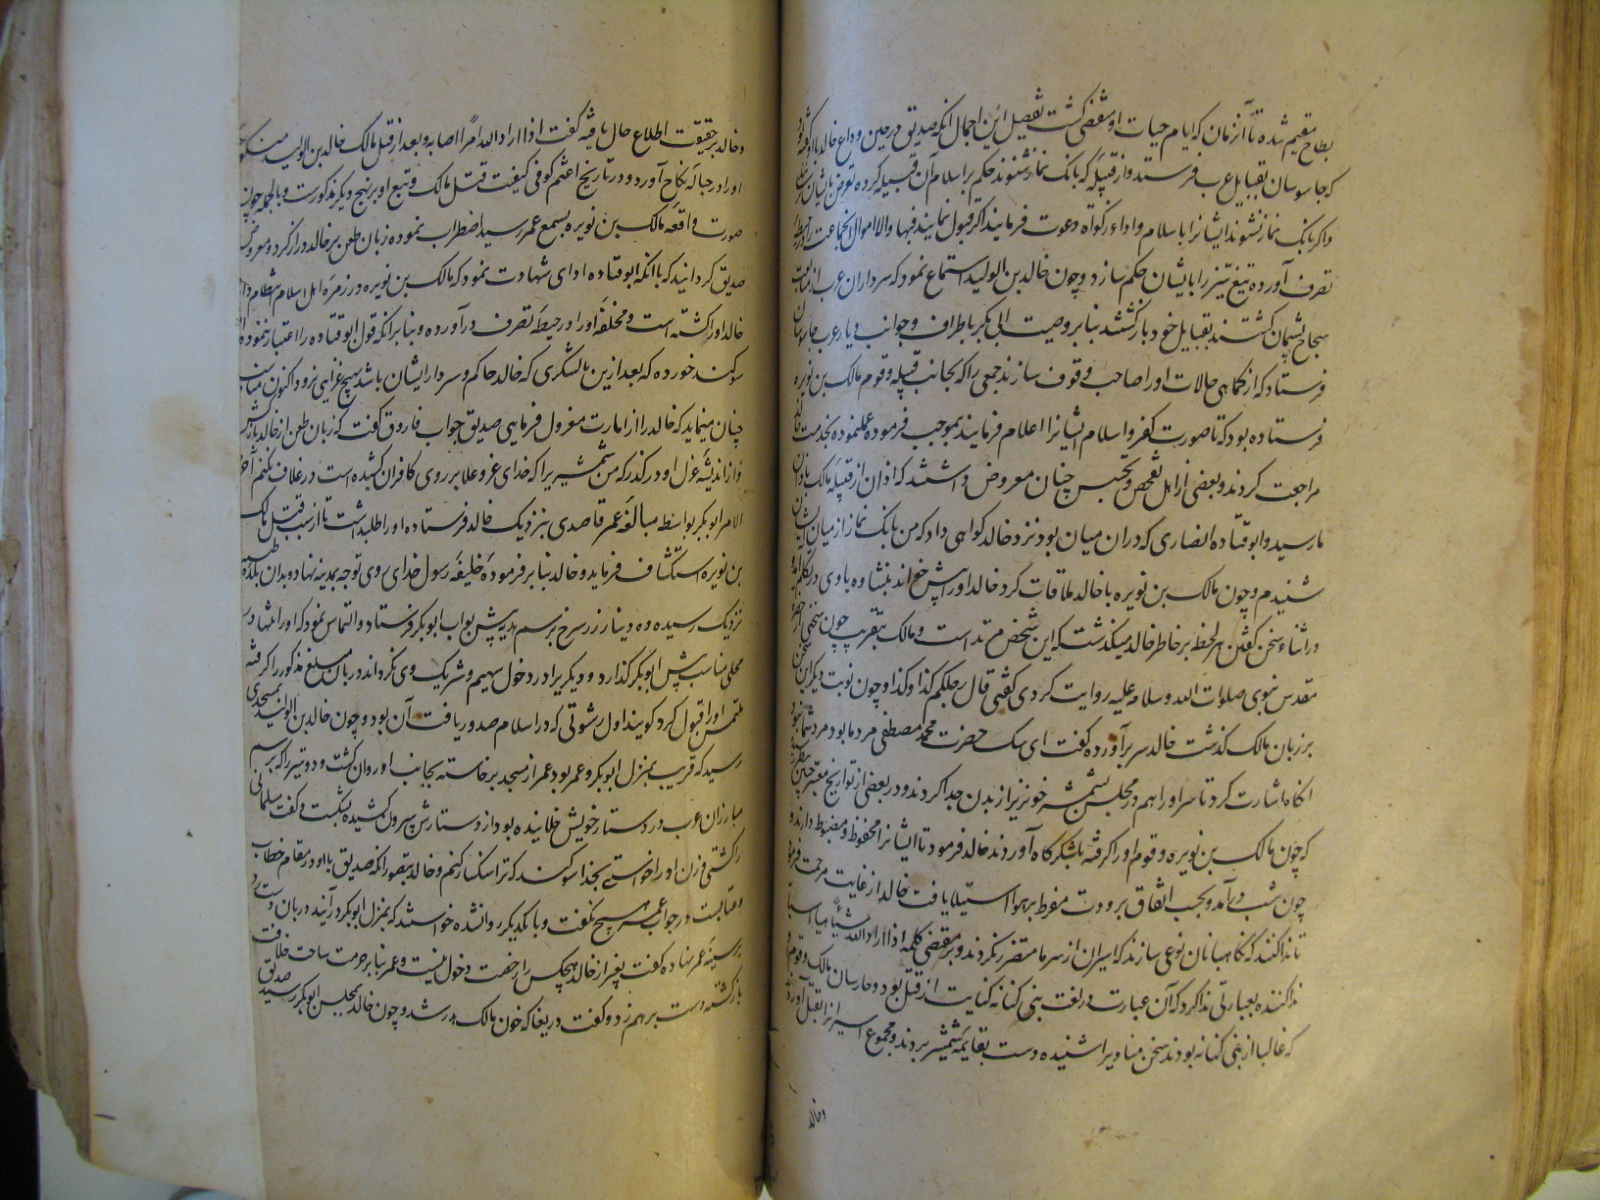 بطاح مقیم شده تا آنزمان که ایام حیات او منقضی گشت تفصیل این اجمال آنکه صدیق در حین وداع خالد با او گفته بود
که جاسوسان بقبایل عرب فرستد و از قبیله که بانک نماز شنوند حکم بر اسلام آن قبیله کرده تعرض بایشان نرسانند
و اگر بانک نماز نشنوند ایشانرا باسلام و اداء زکوة دعوت فرمایند اگر قبول نمایند فبها والا اموال آنجماعت را در حیطه
تصرف آورده تیغ تیز را بایشان حکم سازد و چون خالد بن الولید استماع نمود که سرداران عرب از متابعت
سجاح پشیمان گشتند بقبایل خود بازگشتند بنا بر وصیت ابی بکر باطراف و جوانب دیار عرب جاسوسان
فرستاد که از کماهی حالات او را صاحب وقوف سازند جمعی را که بجانب قبیله و قوم مالک بن نویره
فرستاده بود که تا صورت کفر و اسلام ایشانرا اعلام فرمایند بموجب فرموده عمل نموده بخدمت خالد
مراجعت کردند و بعضی از اهل تفحص و تجسس چنان معروض داشتند که اذان از قبیله مالک باذان
ما رسید و ابو قتاده انصاری که در ان میان بود نزد خالد گواهی داد که من بانک نماز از میان ایشان
شنیدم و چون مالک بن نویره با خالد ملاقات کرد خالد او را پیش خواند بنشاند و با وی در تکلم آمد و
در اثناء سخن گفتن هر لحظه بر خاطر خالد میگذشت که این شخص مرتد است و مالک بتقریب چون سخنی از حضرت
مقدس نبوی صلوات الله و سلامه علیه روایت کردی گفتی قال رجلکم کذا و کذا و چون نوبت دیگر این سخن
بر زبان مالک گذشت خالد سر برآورده گفت ای سک حضرت محمد مصطفی مرد ما بود مرد شما نبود
آنکاه اشارت کرد تا سر او را هم در مجلس بشمشیر خونریز از بدن جدا کردند و در بعضی از تواریخ معتبر چنین مسطور است
که چون مالک بن نویره و قوم او را گرفته بلشکرگاه آوردند خالد فرمود تا ایشانرا محفوظ و مضبوط دارند و
چون شب درآمد و بحسب اتفاق برودت مفرط بر هوا استیلا یافت خالد از غایت مرحمت فرمود
تا ندا کنند که نگاهبانان نوعی سازند که اسیران از سرما متضرر نگردند و بر مقتضی کلمه اذا اراد الله شیئا هیأ اسبابه
ندا کننده بعبارتی ندا کرد که آن عبارت در لغت بنی کنانه کنایت از قتل بود و حارسان مالک و قوم او
که غالبا از بنی کنانه بودند سخن منادی را شنیده دست بقایمه شمشیر بردند و مجموع اسیرانرا بقتل آوردند
و خالد
و خالد بر حقیقت اطلاع حال یافته گفت اذا اراد الله امرا اصابه و بعد از قتل مالک خالد بن الولید منکوحه
او را در حباله نکاح آورد و در تاریخ اعثم کوفی کیفیت قتل مالک و تبع او بر نهج دیگر مذکورست و بالجمله چون
صورت واقعه مالک بن نویره بسمع عمر رسید اضطراب نموده زبان طعن بر خالد دراز کرد و معروض
صدیق گردانید که با آنکه ابو قتاده ادای شهادت نمود که مالک بن نویره در زمره اهل اسلام انتظام دارد
خالد او را کشته است و مخلفه او را در حیطه تصرف درآورده و بنا بر انکه قول ابو قتاده را اعتبار ننموده
سوکند خورده که بعد ازین بالشکری که خالد حاکم و سردار ایشان باشد بهیچ غزایی نرود اکنون مناسب
چنان مینماید که خالد را از امارت معزول فرمایی صدیق جواب فاروق گفت که زبان طعن از خالد باز کش
و از اندیشه عزل او درگذر که من شمشیری را که خدای عز و علا بر روی کافران کشیده است در غلاف نکنم آخر
الامر ابو بکر بواسطه مبالغه عمر قاصدی بنزدیک خالد فرستاده او را طلبداشت تا از سبب قتل مالک
بن نویره استکشاف فرماید و خالد بنا بر فرموده خلیفه رسول خدای روی توجه بمدینه نهاد و بدان بلده طیبه
نزدیک رسیده و ده دینار زر سرخ برسم هدیه پیش بواب ابو بکر فرستاد و التماس نمود که او را تنها در
محلی مناسب پیش ابو بکر گذارد و دیگریرا در دخول سهیم و شریک وی نگرداند دربان مبلغ مذکور را گرفته
ملتمس او را قبول کرد گویند اول رشوتی که در اسلام صدور یافت آن بود و چون خالد بن الولید بمسجدی
رسید که قریب بمنزل ابو بکر و عمر بود عمر از مسجد برخاسته بجانب او روان گشت و دو تیر را که برسم
مبارزان عرب در دستار خویش خلانیده بود از دستارش بیرون کشیده بشکست و گفت مسلمانی
را کشتی و زن او را خواستی بخدا سوکند که ترا سنکسار کنم و خالد بتصور انکه صدیق با او در مقام خطاب
و عتابست در جواب عمر هیچ نگفت و با یکدیگر روانشده خواستند که بمنزل ابو بکر درآیند دربان دست رد
بر سینه عمر نهاده گفت بغیر از خالد هیچکس را رخصت دخول نیست و عمر بنا بر حرمت ساحت خلافت
بازگشته دست بر هم زد و گفت دریغا که خون مالک هدر شد و چون خالد بمجلس ابو بکر رسید صدیق